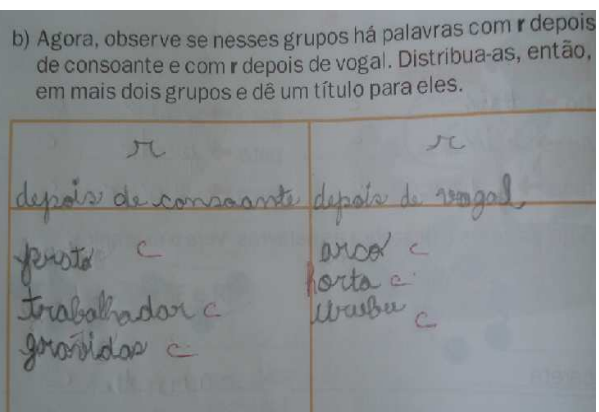 b) Agora, observe se nesses grupos há palavras com r depois
de consoante e com r depois de vogal. Distribua-as, então,
em mais dois grupos e dê um título para eles.
r
r
depois de consoante
depois de vogal
prato C
arco C
horta C
trabalhador C
urubu C
grávidas C